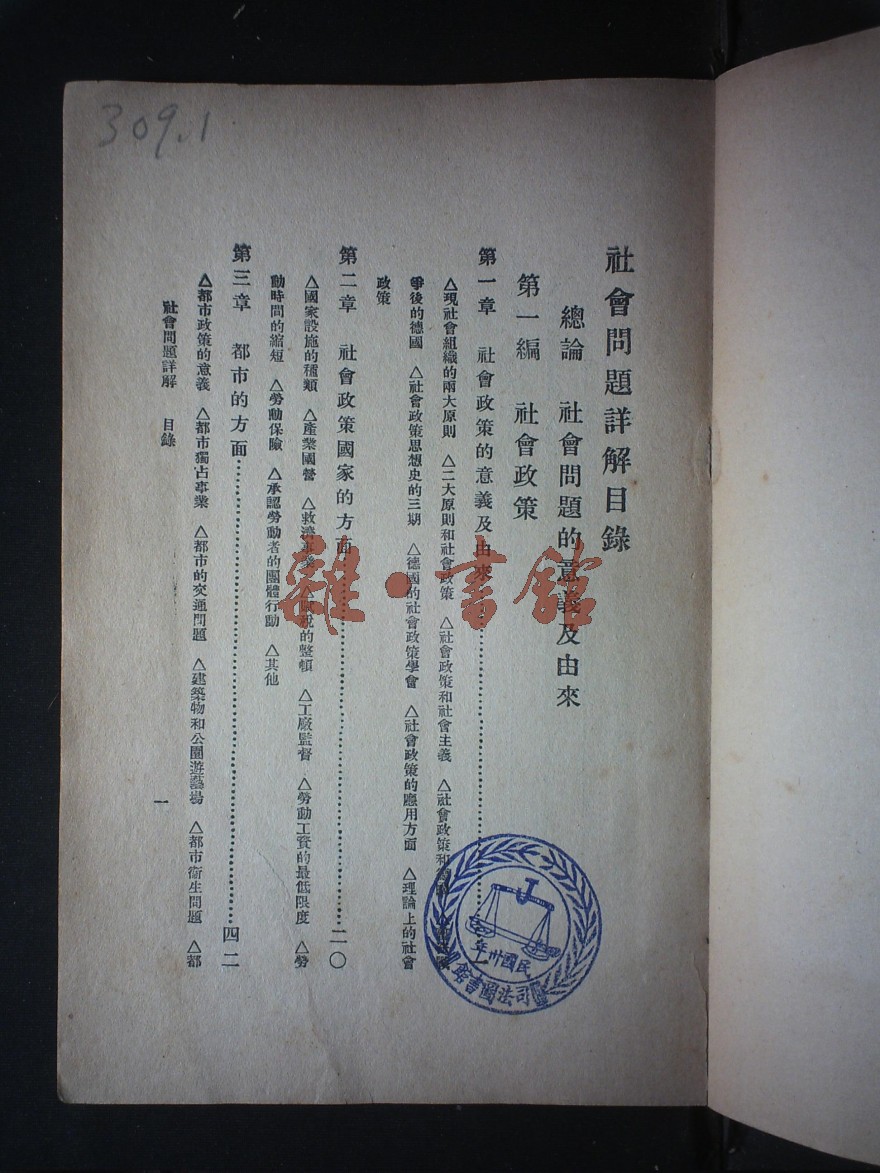 309.1
社會問題詳解目錄
總論 社會問題的意義及由來
第一編 社會政策
第一章 社會政策的意義及由來
△現社會組織的兩大原則 △二大原則和社會政策 △社會政策和社會主義 △社會政策和
爭後的德國 △社會政策思想史的三期 △德國的社會政策學會 △社會政策的應用方面 △理論上的社會
政策
第二章 社會政策國家的方面…………二〇
△國家設施的種類 △產業國營 △救濟事業 △賦稅的整頓 △工廠監督 △勞動工資的最低限度 △勞
動時間的縮短 △勞動保險 △承認勞動者的團體行動 △其他
第三章 都市的方面…………四二
△都市政策的意義 △都市獨占事業 △都市的交通問題 △建築物和公園遊藝場 △都市衛生問題 △都
社會問題詳解 目錄
一
雜·書館
民國卅年
司法圖書館